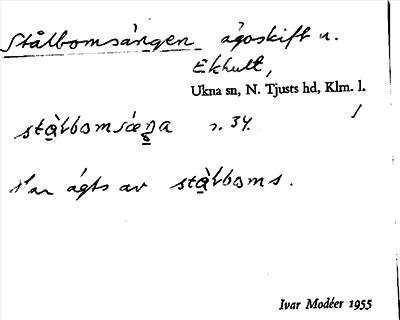 Stålbomsängen ägoskift u.
Ekhult,
Ukna sn, N. Tjusts hd, Klm. l.
s. 34.
Har ägts av stå̀lboms.
Ivar Modéer 1955